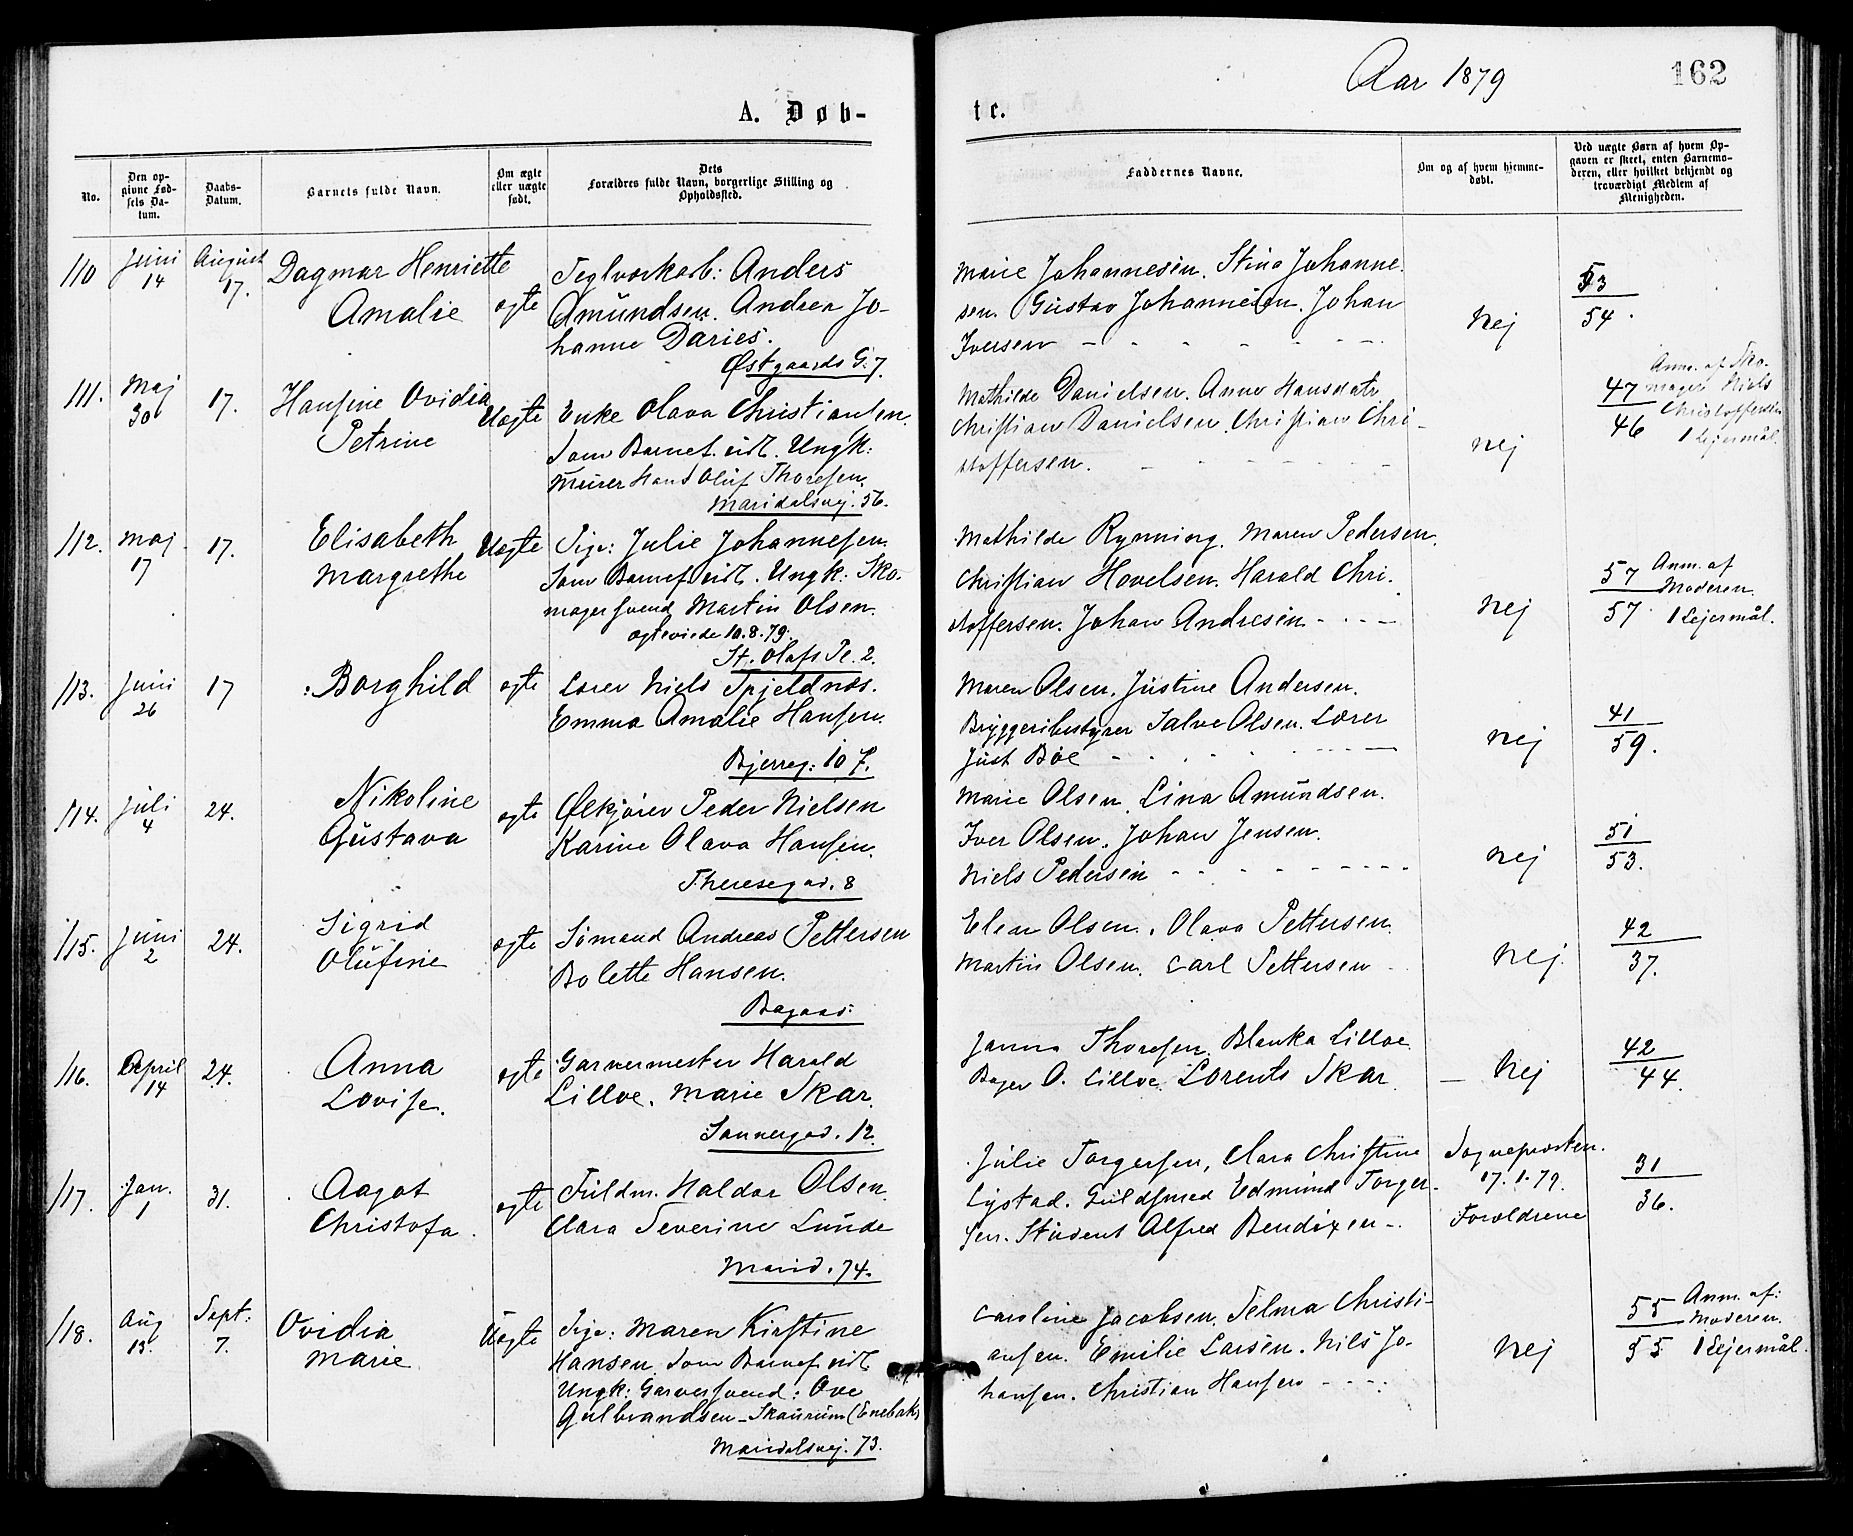 Aar 1879
162
A. Døb-
te.
No.
Den op-
givne Fød-
sels Da-
tum.
Daabs-
Datum.
Barnets fulde Navn.
Om ægte
eller uægte
født.
Dets
Forældres fulde Navn, borgerlige Stilling og
Opholdssted.
Faddernes Navne.
Om og af hvem hjemme-
døbt.
Ved uægte Børn af hvem Op-
gaven er skeet, enten Barnemo-
deren, eller hvilket bekjendt og
troværdigt Medlem af
Menigheden.
110
Juni
14
August
17.
Dagmar Henriette
Amalie
ægte
Teglværkarb: Anders
Amundsen. Andrea Jo-
hanne Daries.
Østgaards G. 7.
Marie Johannesen. Stina Johanne-
sen. Gustav Johannesen. Johan
Iversen
Nej
53
54.
111.
Maj
30
17.
Hansine Ovidia
Petrine
Uægte
Enke Olava Christiansen.
Som Barnef. udl. Ungk:
Murer Hans Oluf Thoresen.
Maridalsvej. 56.
Mathilde Danielsen. Anne Hansdatr.
Christian Danielsen. Christian Chri-
stoffersen.
nej
47
46
Anm. af Sko-
mager Niels
Christoffersen
1 Lejermål.
112.
Maj
17
17.
Elisabeth
Margrethe
Uægte
Pige: Julie Johannesen.
Som Barnef. udl. Ungk: Sko-
magersvend Martin Olsen.
ægteviede 10.8.79.
St. Olafs Pl. 2.
Mathilde Rynning. Maren Pedersen.
Christian Hovelsen. Harald Chri-
stoffersen. Johan Andresen
nej
57
57
Anm. af
Moderen.
1 Lejermål.
113.
Juni
26
17
Borghild
ægte
Lærer Niels Spjeldnæs.
Emma Amalie Hansen.
Bjerreg: 10 F.
Maren Olsen. Justine Andersen.
Bryggeribestyrer Salve Olsen. Lærer
Just Bøe
nej
41
59.
114.
Juli
4
24.
Nikoline
Gustava
ægte
Ølkjører Peder Nielsen
Karine Olava Hansen.
Theresegad. 8
Marie Olsen. Lina Amundsen.
Iver Olsen. Johan Jensen.
Niels Pedersen
nej
51
53.
115.
Juni
2
24.
Sigrid
Olufine
ægte
Sømand Andreas Pettersen
Bolette Hansen.
Bagaas:
Elen Olsen. Olava Pettersen.
Martin Olsen. Carl Pettersen
Nej
42
37.
116.
April
14
24.
Anna
Lovise.
ægte
Garvermester Harald
Lilloe. Marie Skar.
Sannergad. 12.
Janna Thoresen. Blanka Lilloe.
Bager O. Lilloe. Lorents Skar
Nej
42
44.
117.
Jan.
1
31.
Aagot
Christofa.
ægte
Fuldm. Haldor Olsen.
Clara Severine Lunde
Marid. 74.
Julie Torgersen, Clara Christine
Lystad. Guldsmed Edmund Torger-
sen. Student Alfred Bendixen
Sognepresten.
17.1.79.
Forældrene
31
36.
118.
Aug
13.
Sept:
7.
Ovidia
Marie
Uægte
Pige: Maren Kirstine
Hansen. Som Barnef. udl.
Ungk: Garversvend: Ove
Gulbrandsen - Skaurum (Enebak)
Maridalsvej. 73.
Caroline Jacobsen. Selma Christi-
ansen. Emilie Larsen. Nils Jo-
hansen. Christian Hansen
Nej
55
55
Anm. af:
Moderen.
1 Lejermål.